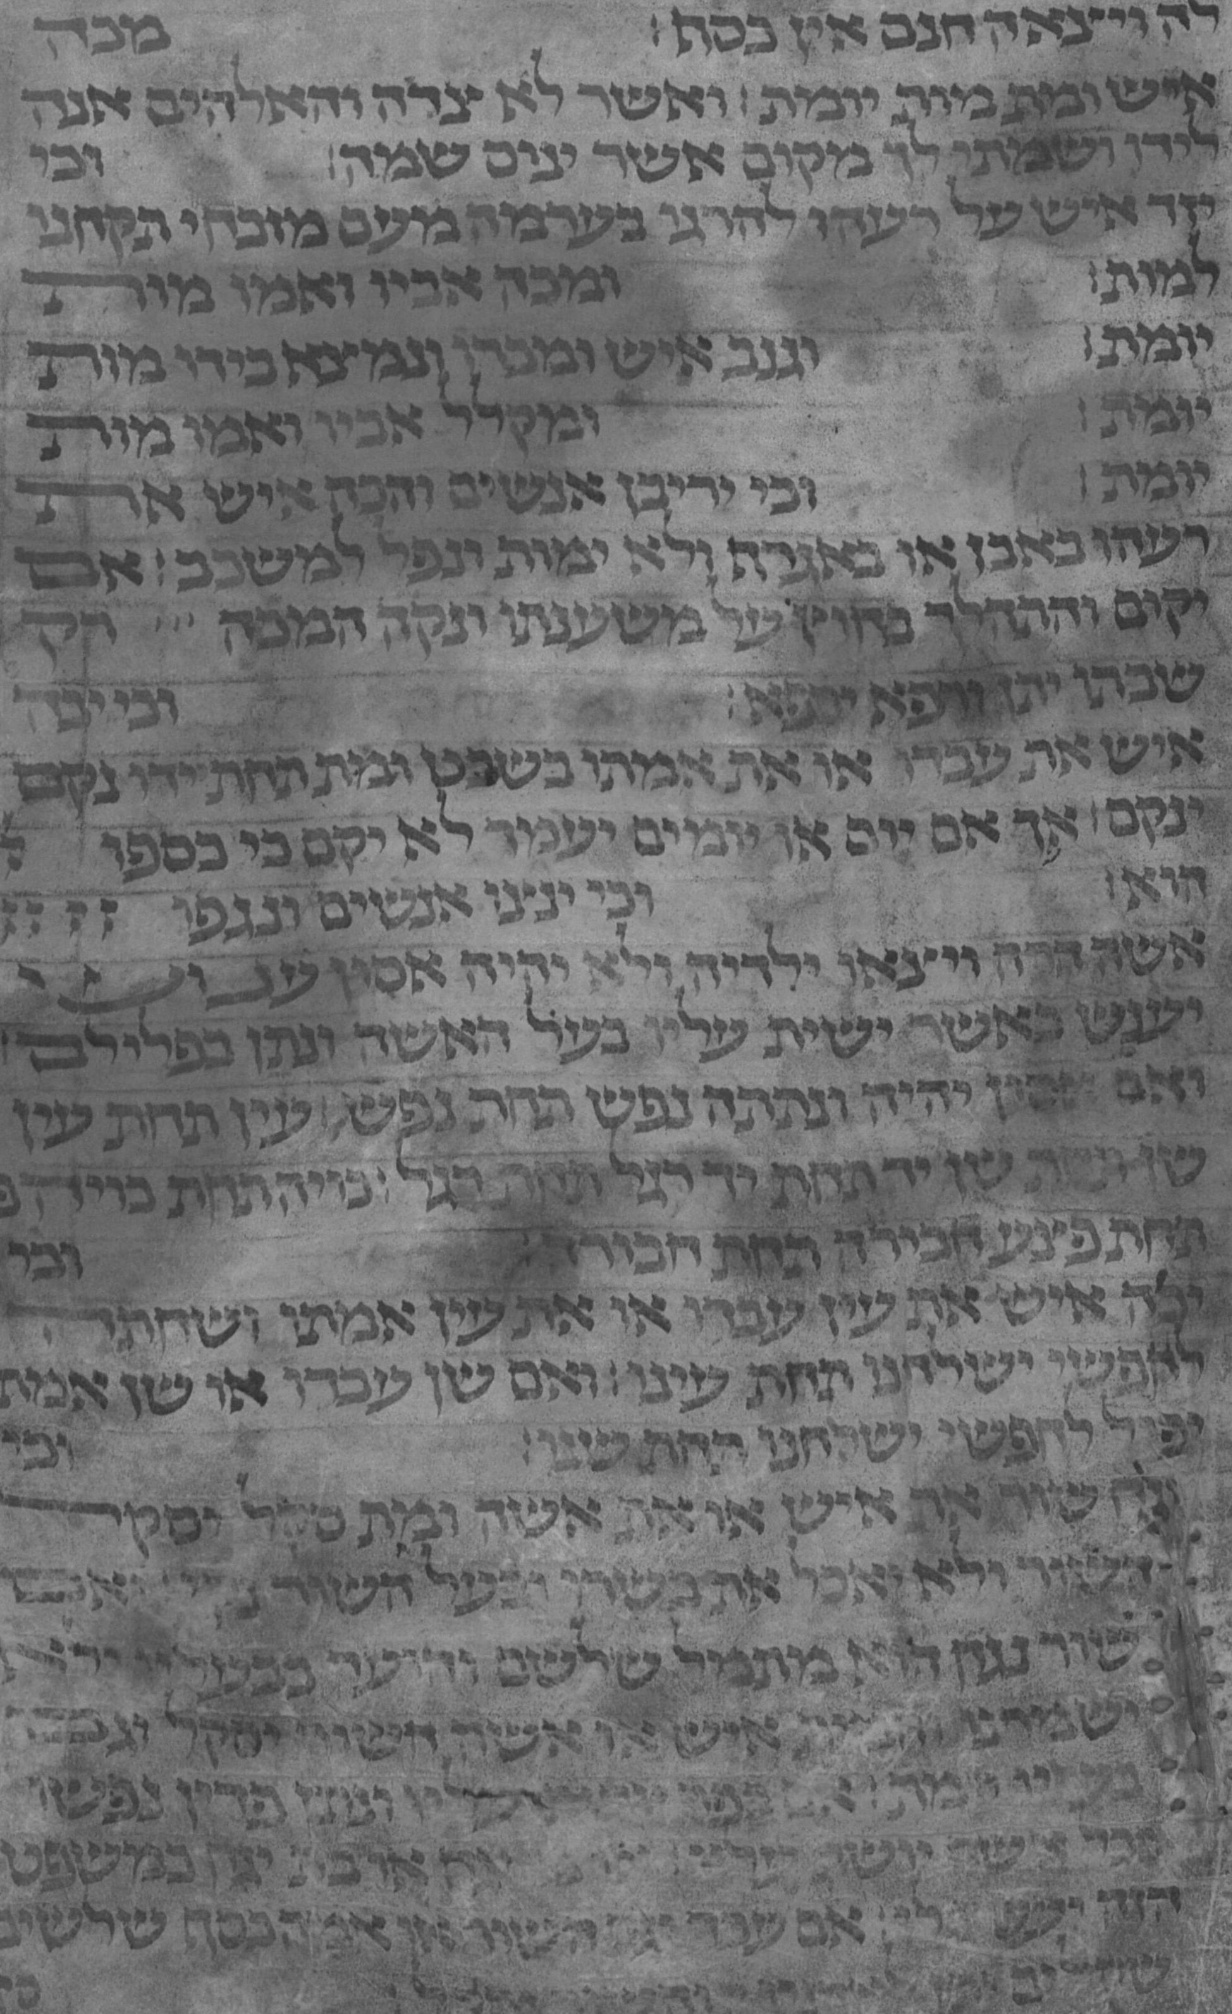 לה ויצאה חנם אין כסף׃ מכה
איש ומת מות יומת׃ ואשר לא צדה והאלהים אנה
לידו ושמתי לך מקום אשר ינוס שמה׃ וכי
יזד איש על רעהו להרגו בערמה מעם מזבחי תקחנו
למות׃ ומכה אביו ואמו מות
יומת׃ וגנב איש ומכרו ונמצא בידו מות
יומת׃ ומקלל אביו ואמו מות
יומת׃ וכי יריבן אנשים והכה איש את
רעהו באבן או באגרף ולא ימות ונפל למשכב׃ אם
יקום והתהלך בחוץ על משענתו ונקה המכה רק
שבתו יתן ורפא ירפא׃ וכי יכה
איש את עבדו או את אמתו בשבט ומת תחת ידו נקם
ינקם׃ אך אם יום או יומים יעמד לא יקם כי כספו
הוא׃ וכי ינצו אנשים ונגפו
אשה הרה ויצאו ילדיה ולא יהיה אסון ענוש
יענש כאשר ישית עליו בעל האשה ונתן בפלילם׃
ואם אסון יהיה ונתתה נפש תחת נפש׃ עין תחת עין
שן תחת שן יד תחת יד רגל תחת רגל׃ כויה תחת כויה
תחת פצע חבורה תחת חבורה׃ וכי
יכה איש את עין עבדו או את עין אמתו ושחתה
לחפשי ישלחנו תחת עינו׃ ואם שן עבדו או שן אמת
יפיל לחפשי ישלחנו תחת שנו׃ וכי
יגח שור את איש או את אשה ומת סקל יסקל
השור ולא יאכל את בשרו ובעל השור נקי׃ ואם
שור נגח הוא מתמל שלשם והועד בבעליו ולא
ישמרנו והמית איש או אשה השור יסקל וגם
בעליו יומת׃ אם כפר עליו ונתן פדין נפשו
ככל אשר יושת או בת יגח כמשפט
הזה יעשה לו׃ אם עבד יגח השור או אמה כסף שלשים
שקלים